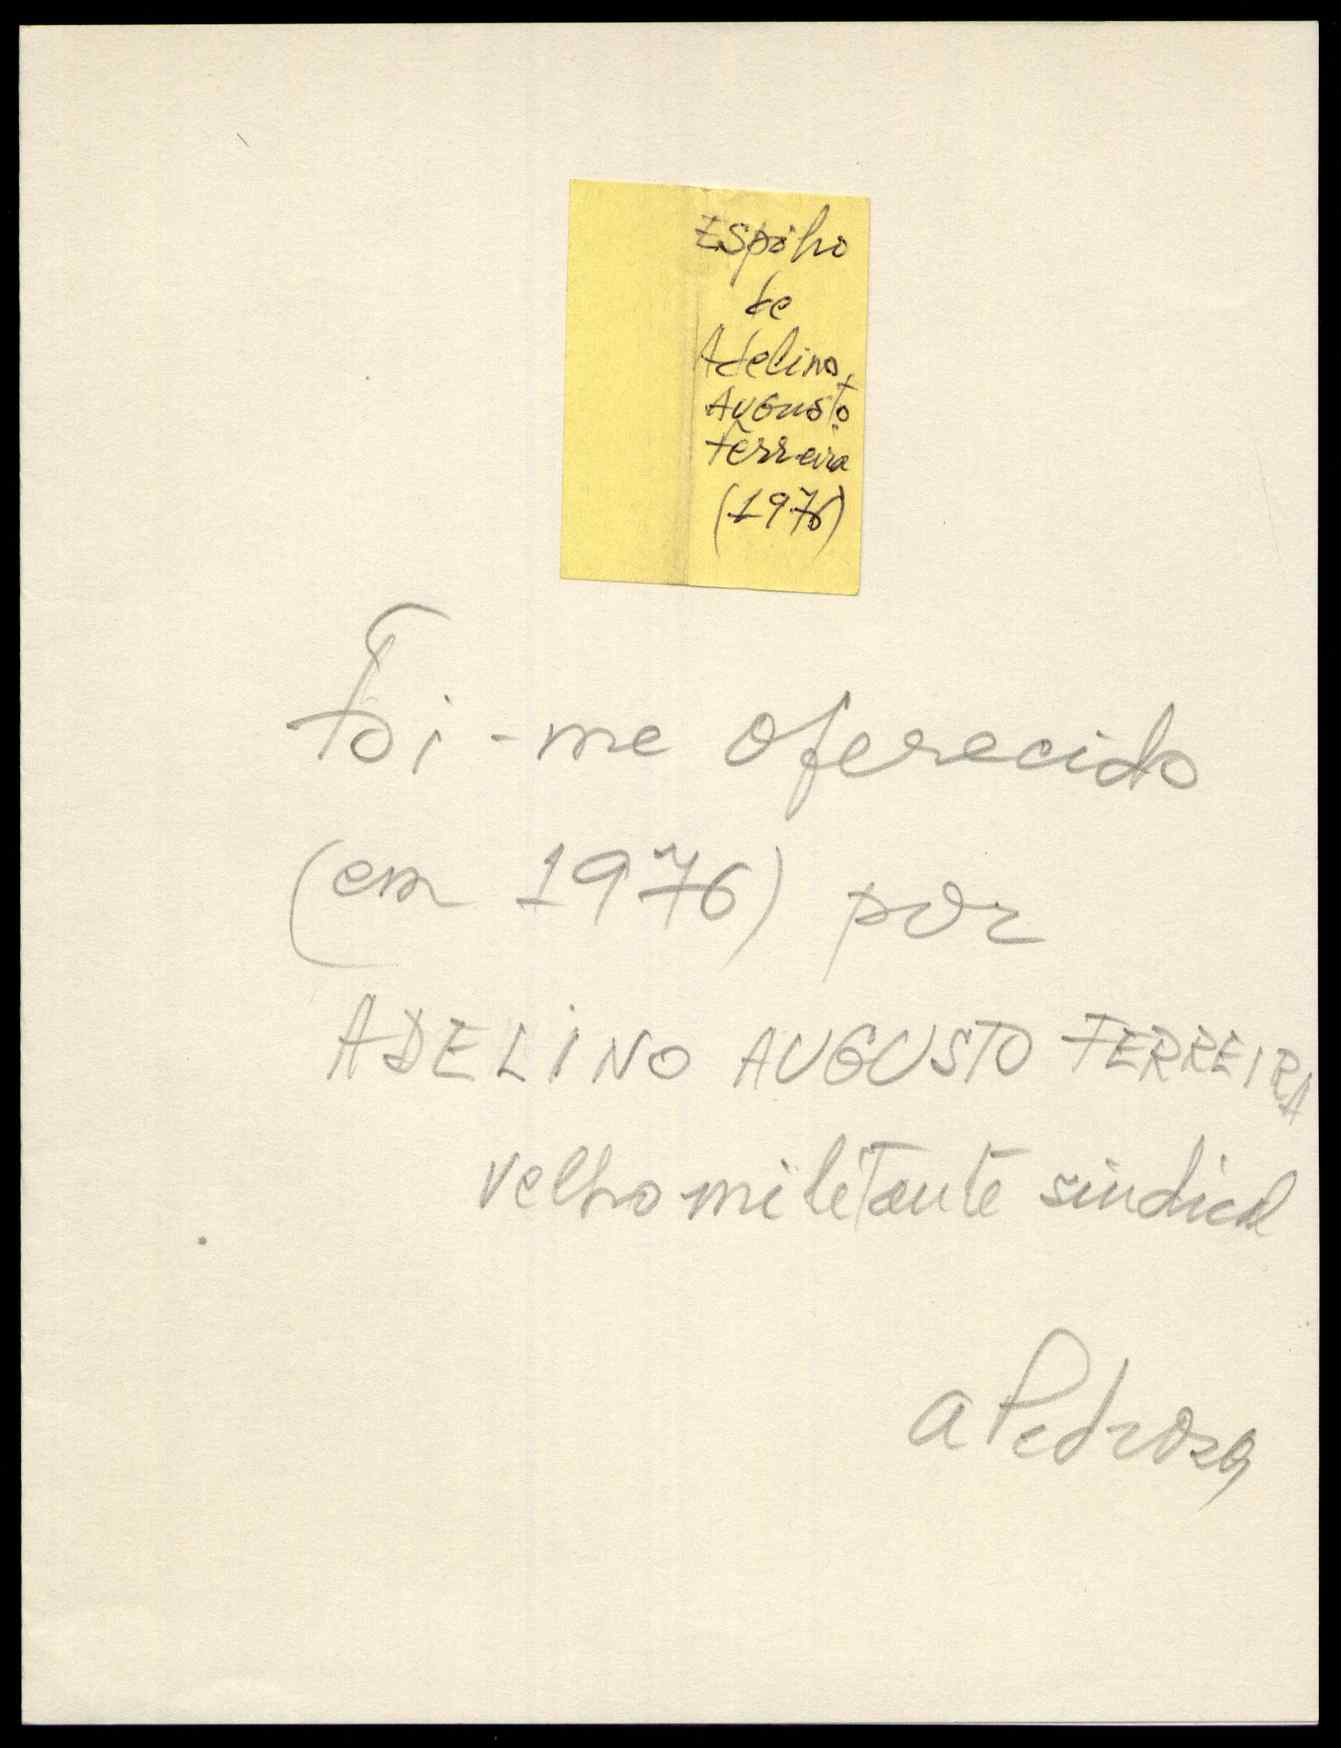 Espólio
de
Adelino
Augusto
Ferreira
(1976)
Foi-me oferecido
(em 1976) por
ADELINO AUGUSTO FERREIRA
velho militante sindical
A Pedrosa